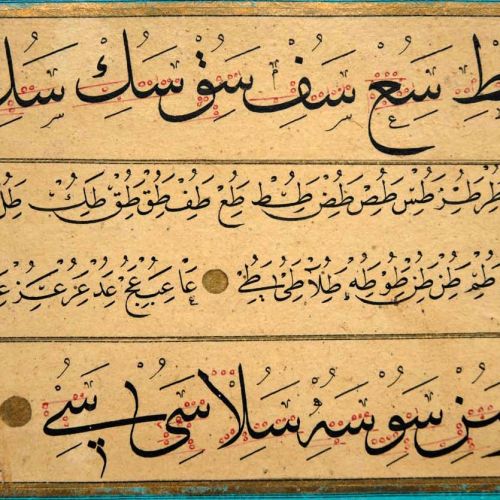 ط سع سف سق سك سل
طر طس طص طض طط طع طف طق طق طك طل
طم طن طن طو طه طلا طى طى عا عب عج عد عر عز
سن سو سه سلا سى سى